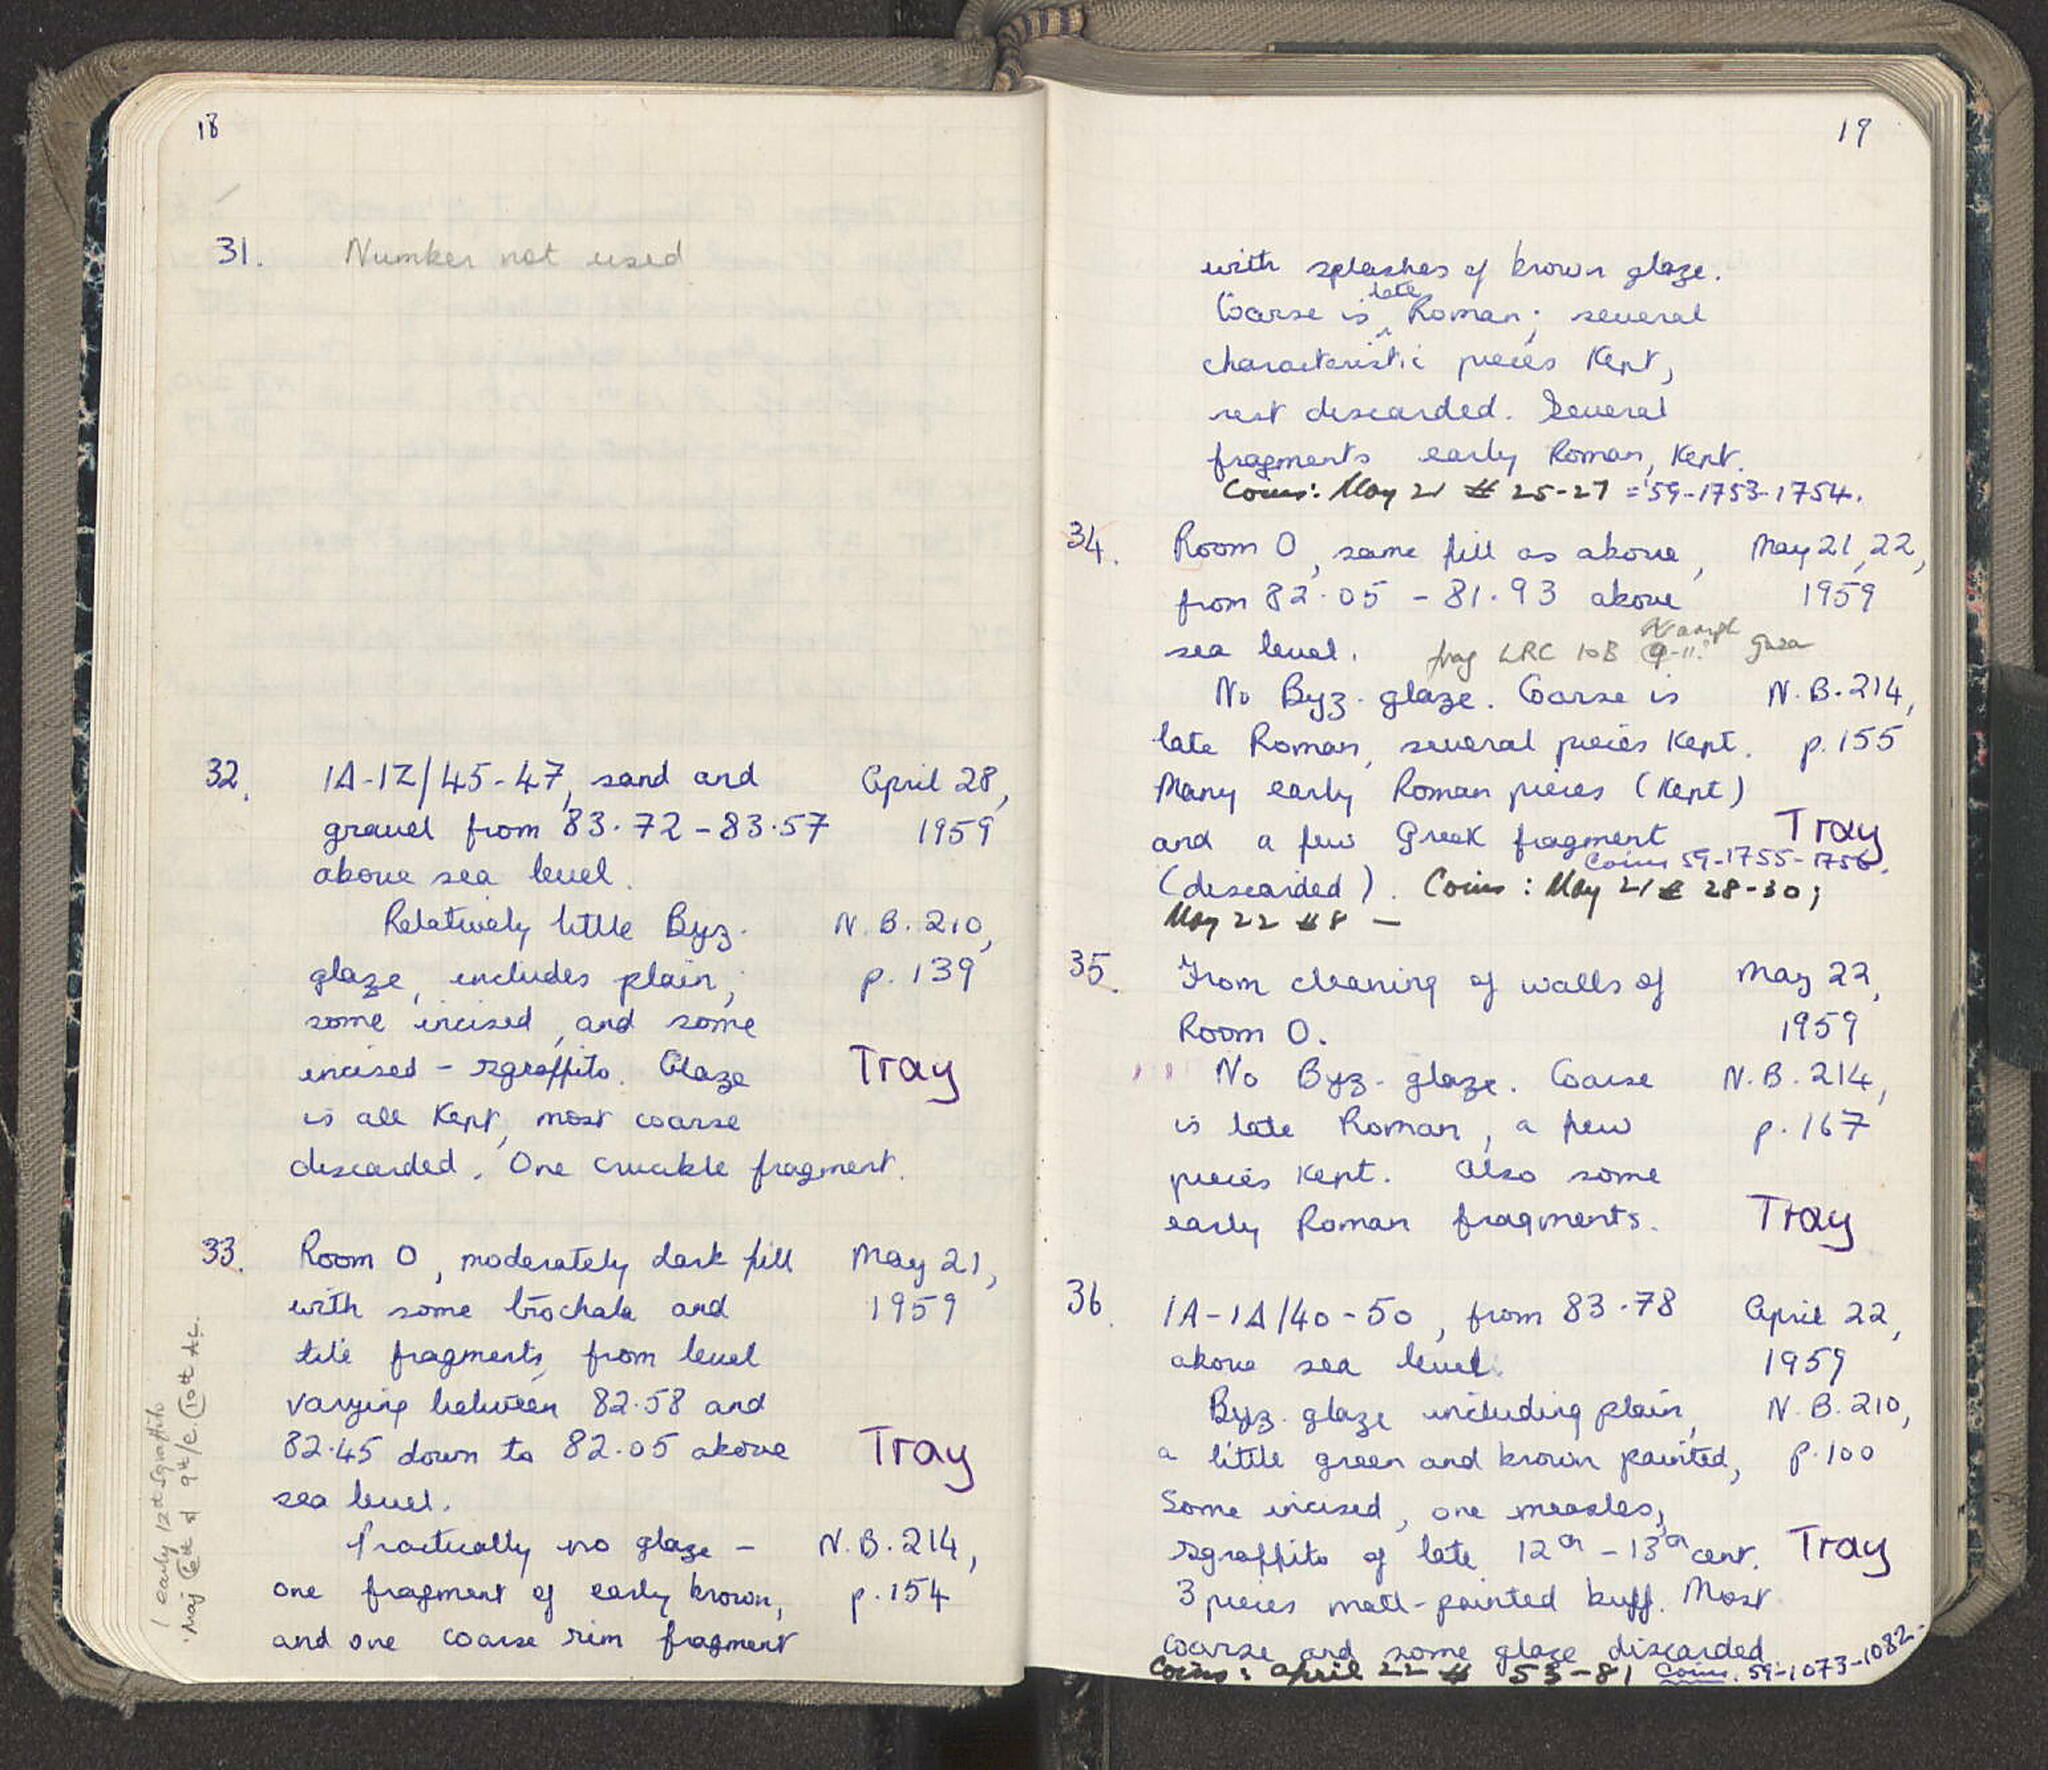 18
31. Number not used
32. IA-IZ/45-47, sand and April 28,
gravel from 83.72-83.57 1959
above sea level.
Relatively little Byz. N.B.210,
glaze, includes plain, p. 139
some incised, and some
incised - sgraffito. Glaze Tray
is all kept, most coarse
discarded. One crucible fragment.
33. Room O, moderately dark fill May 21,
with some trochala and 1959
tile fragments, from level
varying between 82.58 and
82.45 down to 82.05 above Tray
sea level.
Practically no glaze - N.B.214,
one fragment of early brown, p. 154
and one coarse rim fragment
1 early 12th sgraffito
Maj 6th 9th/e. 10th AC.
19
with splashes of brown glaze.
Coarse is late Roman; several
characteristic pieces kept,
rest discarded. Several
fragments early Roman, kept.
Coins: May 21 # 25-27 = 59-1753-1754.
34. Room O, same fill as above, May 21, 22,
from 82.05 - 81.93 above 1959
sea level. frag LRC 10B Gaza
No Byz. glaze. Coarse is N.B.214,
late Roman, several pieces kept. p. 155
Many early Roman pieces (kept)
and a few Greek fragment Tray
Coins 59-1755-1756.
(discarded). Coins: May 21 # 28-30;
May 22 #8 —
35. From cleaning of walls of May 22,
Room O. 1959
No Byz. glaze. Coarse N.B.214,
is late Roman, a few p. 167
pieces kept. Also some
early Roman fragments. Tray
36. IA-IA/40-50, from 83.78 April 22,
above sea level. 1959
Byz. glaze including plain, N.B.210,
a little green and brown painted, p. 100
some incised, one measles,
sgraffito of late 12th-13th cent. Tray
3 pieces matt-painted buff. Most
coarse and some glaze discarded
Coins: April 22 # 53-81 Coins. 59-1073-1082.